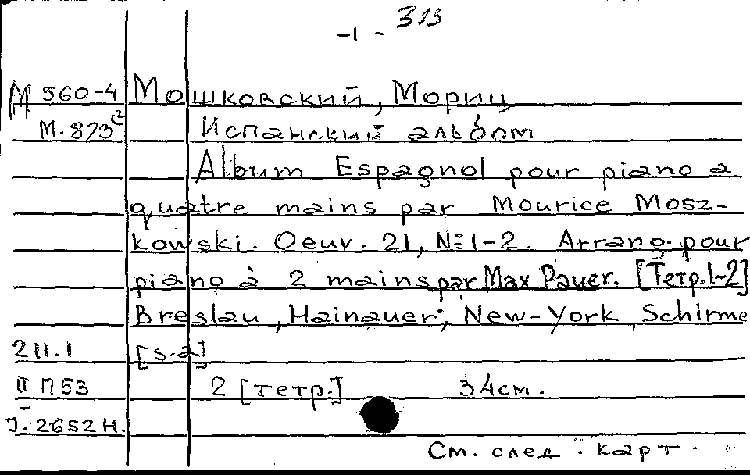 -1- 313
М 560-4 Мошковский, Мориц
М.823² Испанский альбом
Album Espagnol pour piano a
quatre mains par Mourice Mosz-
kowski. Oeuv. 21, №1-2. Arrang. pour
piano à 2 mains par Max Pauer. [Тетр.1-2]
Breslau, Hainauer; New-York, Schirme
211.1 [s.a]
II П53 2 [тетр.] 34см.
I.2652н.
См. след. карт.